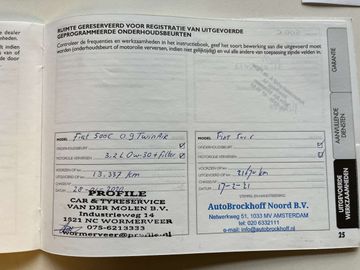 RUIMTE GERESERVEERD VOOR REGISTRATIE VAN UITGEVOERDE
GEPROGRAMMEERDE ONDERHOUDSBEURTEN
Controleer de frequenties en werkzaamheden in het instructieboek, geef het soort bewerking aan die uitgevoerd moet
worden (onderhoudsbeurt of motorolie verversen, indien niet gelijktijdig) en vul alle andere van toepassing zijnde velden in.
dealer
indien
GARANTIE
AANVULLENDE
DIENSTEN
UITGEVOERDE
WERKZAAMHEDEN
MODEL Fiat 500C 0.9 TwinAir
ONDERHOUDSBEURT
MOTOROLIE VERVERSEN 3.2 L 0w-30 + filter
UITGEVOERD OP km 13.337 km
DATUM
PROFILE
CAR & TYRESERVICE
VAN DER MOLEN B.V.
Industrieweg 14
1521 NC WORMERVEER
075-6213333
MODEL Fiat
ONDERHOUDSBEURT
MOTOROLIE VERVERSEN
UITGEVOERD OP km
DATUM 17-2-21
AutoBrockhoff Noord B.V.
Netwerkweg 51, 1033 MV AMSTERDAM
tel: 020 6332111
e-mail: info@autobrockhoff.nl
25